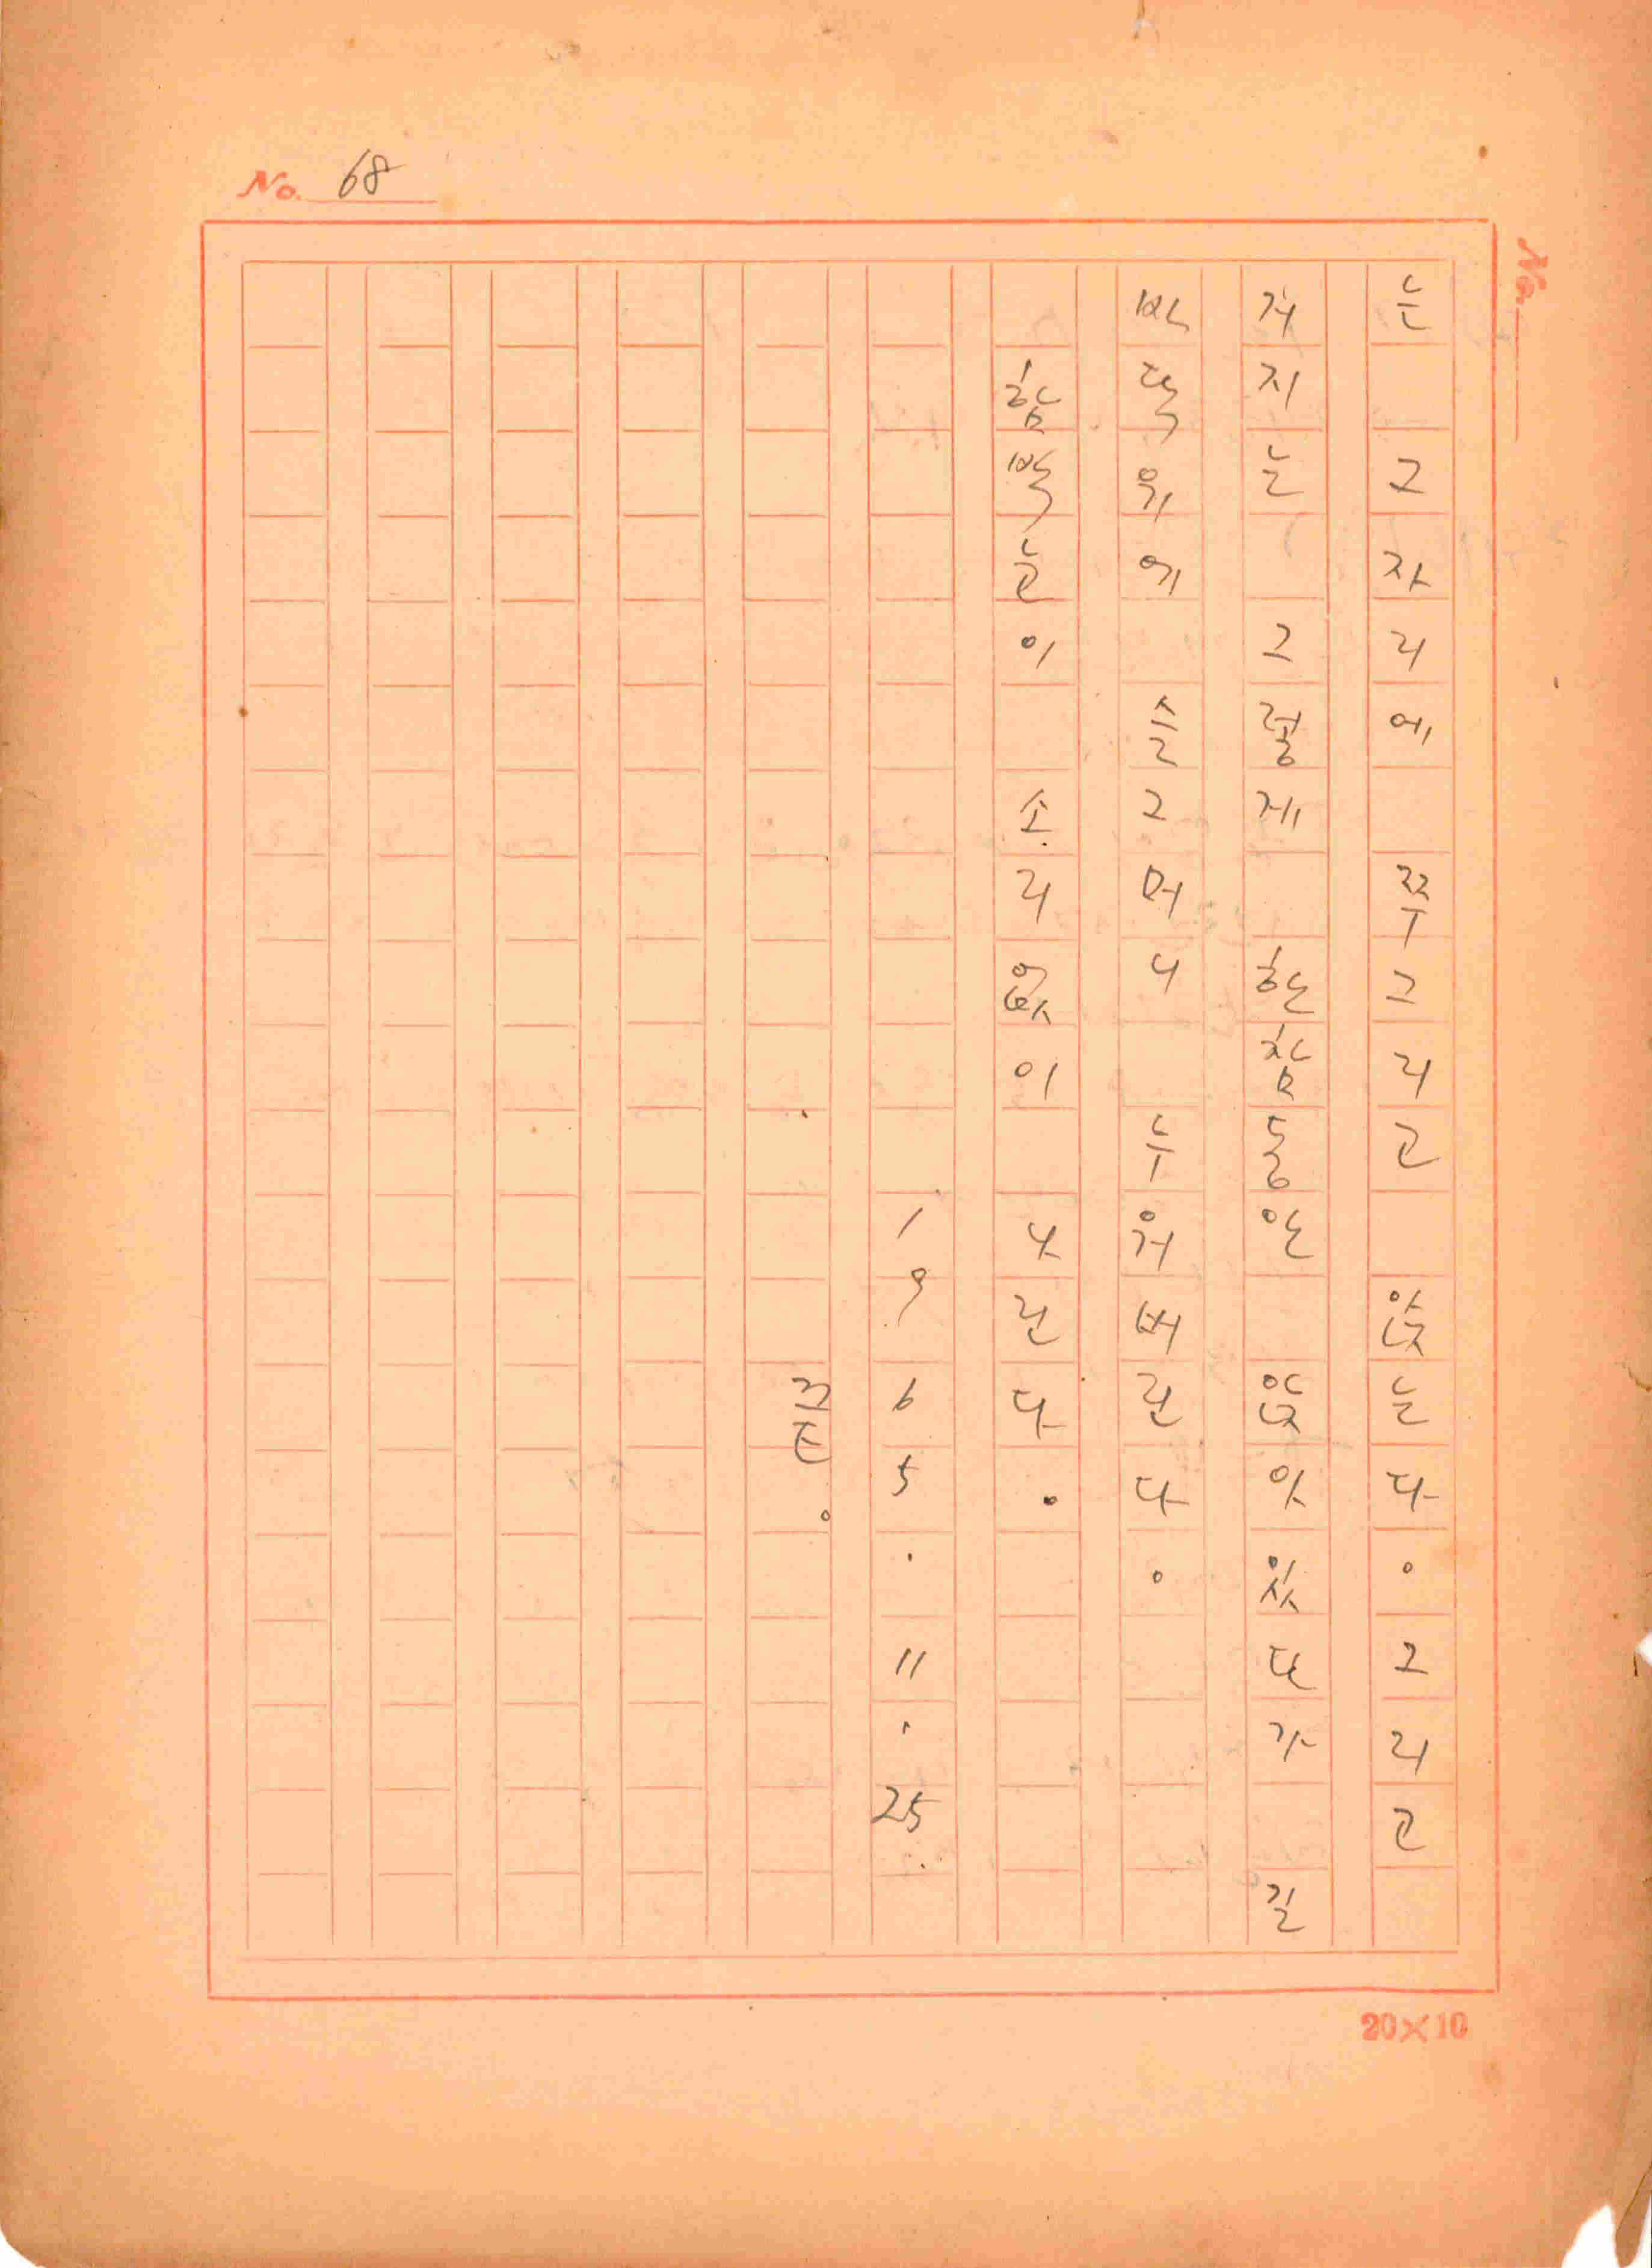 No. 68
No.
는 그자리에 쭈그리고 앉는다. 그리고
거지는 그렇게 한참동안 앉아있다가 길
바닥위에 슬그머니 누워버린다.
함박눈이 소리없이 나린다.
1965. 11. 25.
끝.
20×10